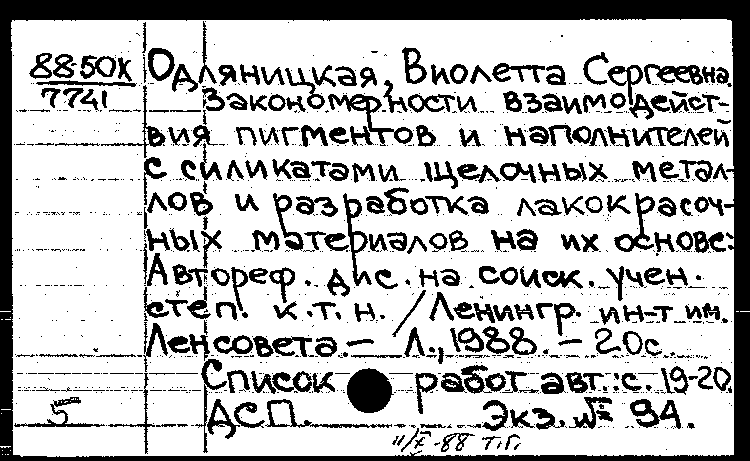 88-50X Одляницкая, Виолетта Сергеевна
7741 Закономерности взаимодейст-
вия пигментов и наполнителей
с силикатами щелочных метал-
лов и разработка лакокрасоч-
ных материалов на их основе:
Автореф. дис. на соиск. учен.
степ. к.т.н. / Ленингр. ин-т им.
Ленсовета. — Л., 1988. — 20с.
Список работ авт.: с. 19-20.
5 ДСП. Экз. № 94.
11/X-88 Т.Г.